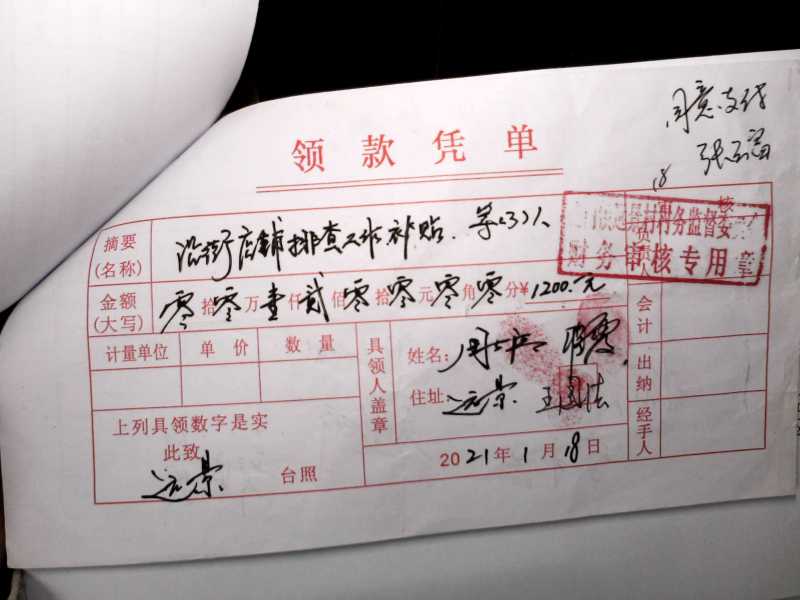 同意支付
18
领款凭单
摘要(名称) 沿街店铺排查工作补贴. 等(3)人
村务监督委
财务审核专用章
金额(大写) 零拾零万壹仟贰佰零拾零元零角零分¥1200.元
会计
计量单位 单价 数量
具领人盖章
姓名:
出纳
住址: 远景
上列具领数字是实
此致
远景 台照
经手人
2021年1月18日